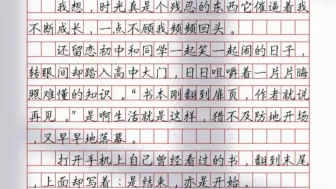 我想，时光真是个残忍的东西它催逼着我
不断成长，一点不顾我频频回头。
还留恋初中和同学一起笑一起闹的日子，
转眼间却踏入高中大门，日日咀嚼着一片片晦
照难懂的知识。“书本刚翻到扉页，作者就说
再见。”是啊生活就是这样，猎不及防地开场，
又早早地落幕。
打开手机上自己曾经看过的书，翻到末尾
，上面却写着：是结束，亦是开始。